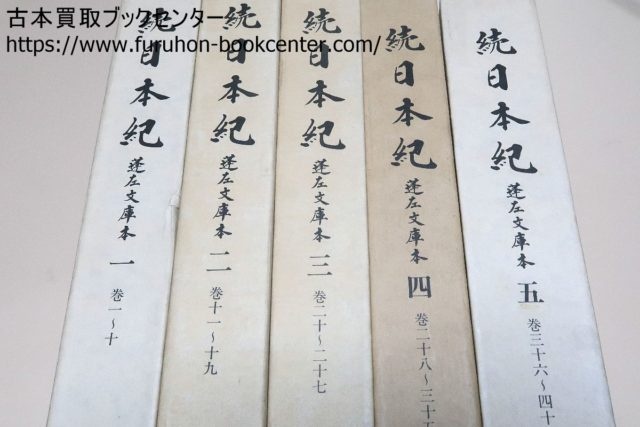 古本買取ブックセンター
https://www.furuhon-bookcenter.com/
続日本紀 蓬左文庫本 一 巻一〜十
続日本紀 蓬左文庫本 二 巻十一〜十九
続日本紀 蓬左文庫本 三 巻二十〜二十七
続日本紀 蓬左文庫本 四 巻二十八〜三十五
続日本紀 蓬左文庫本 五 巻三十六〜四十